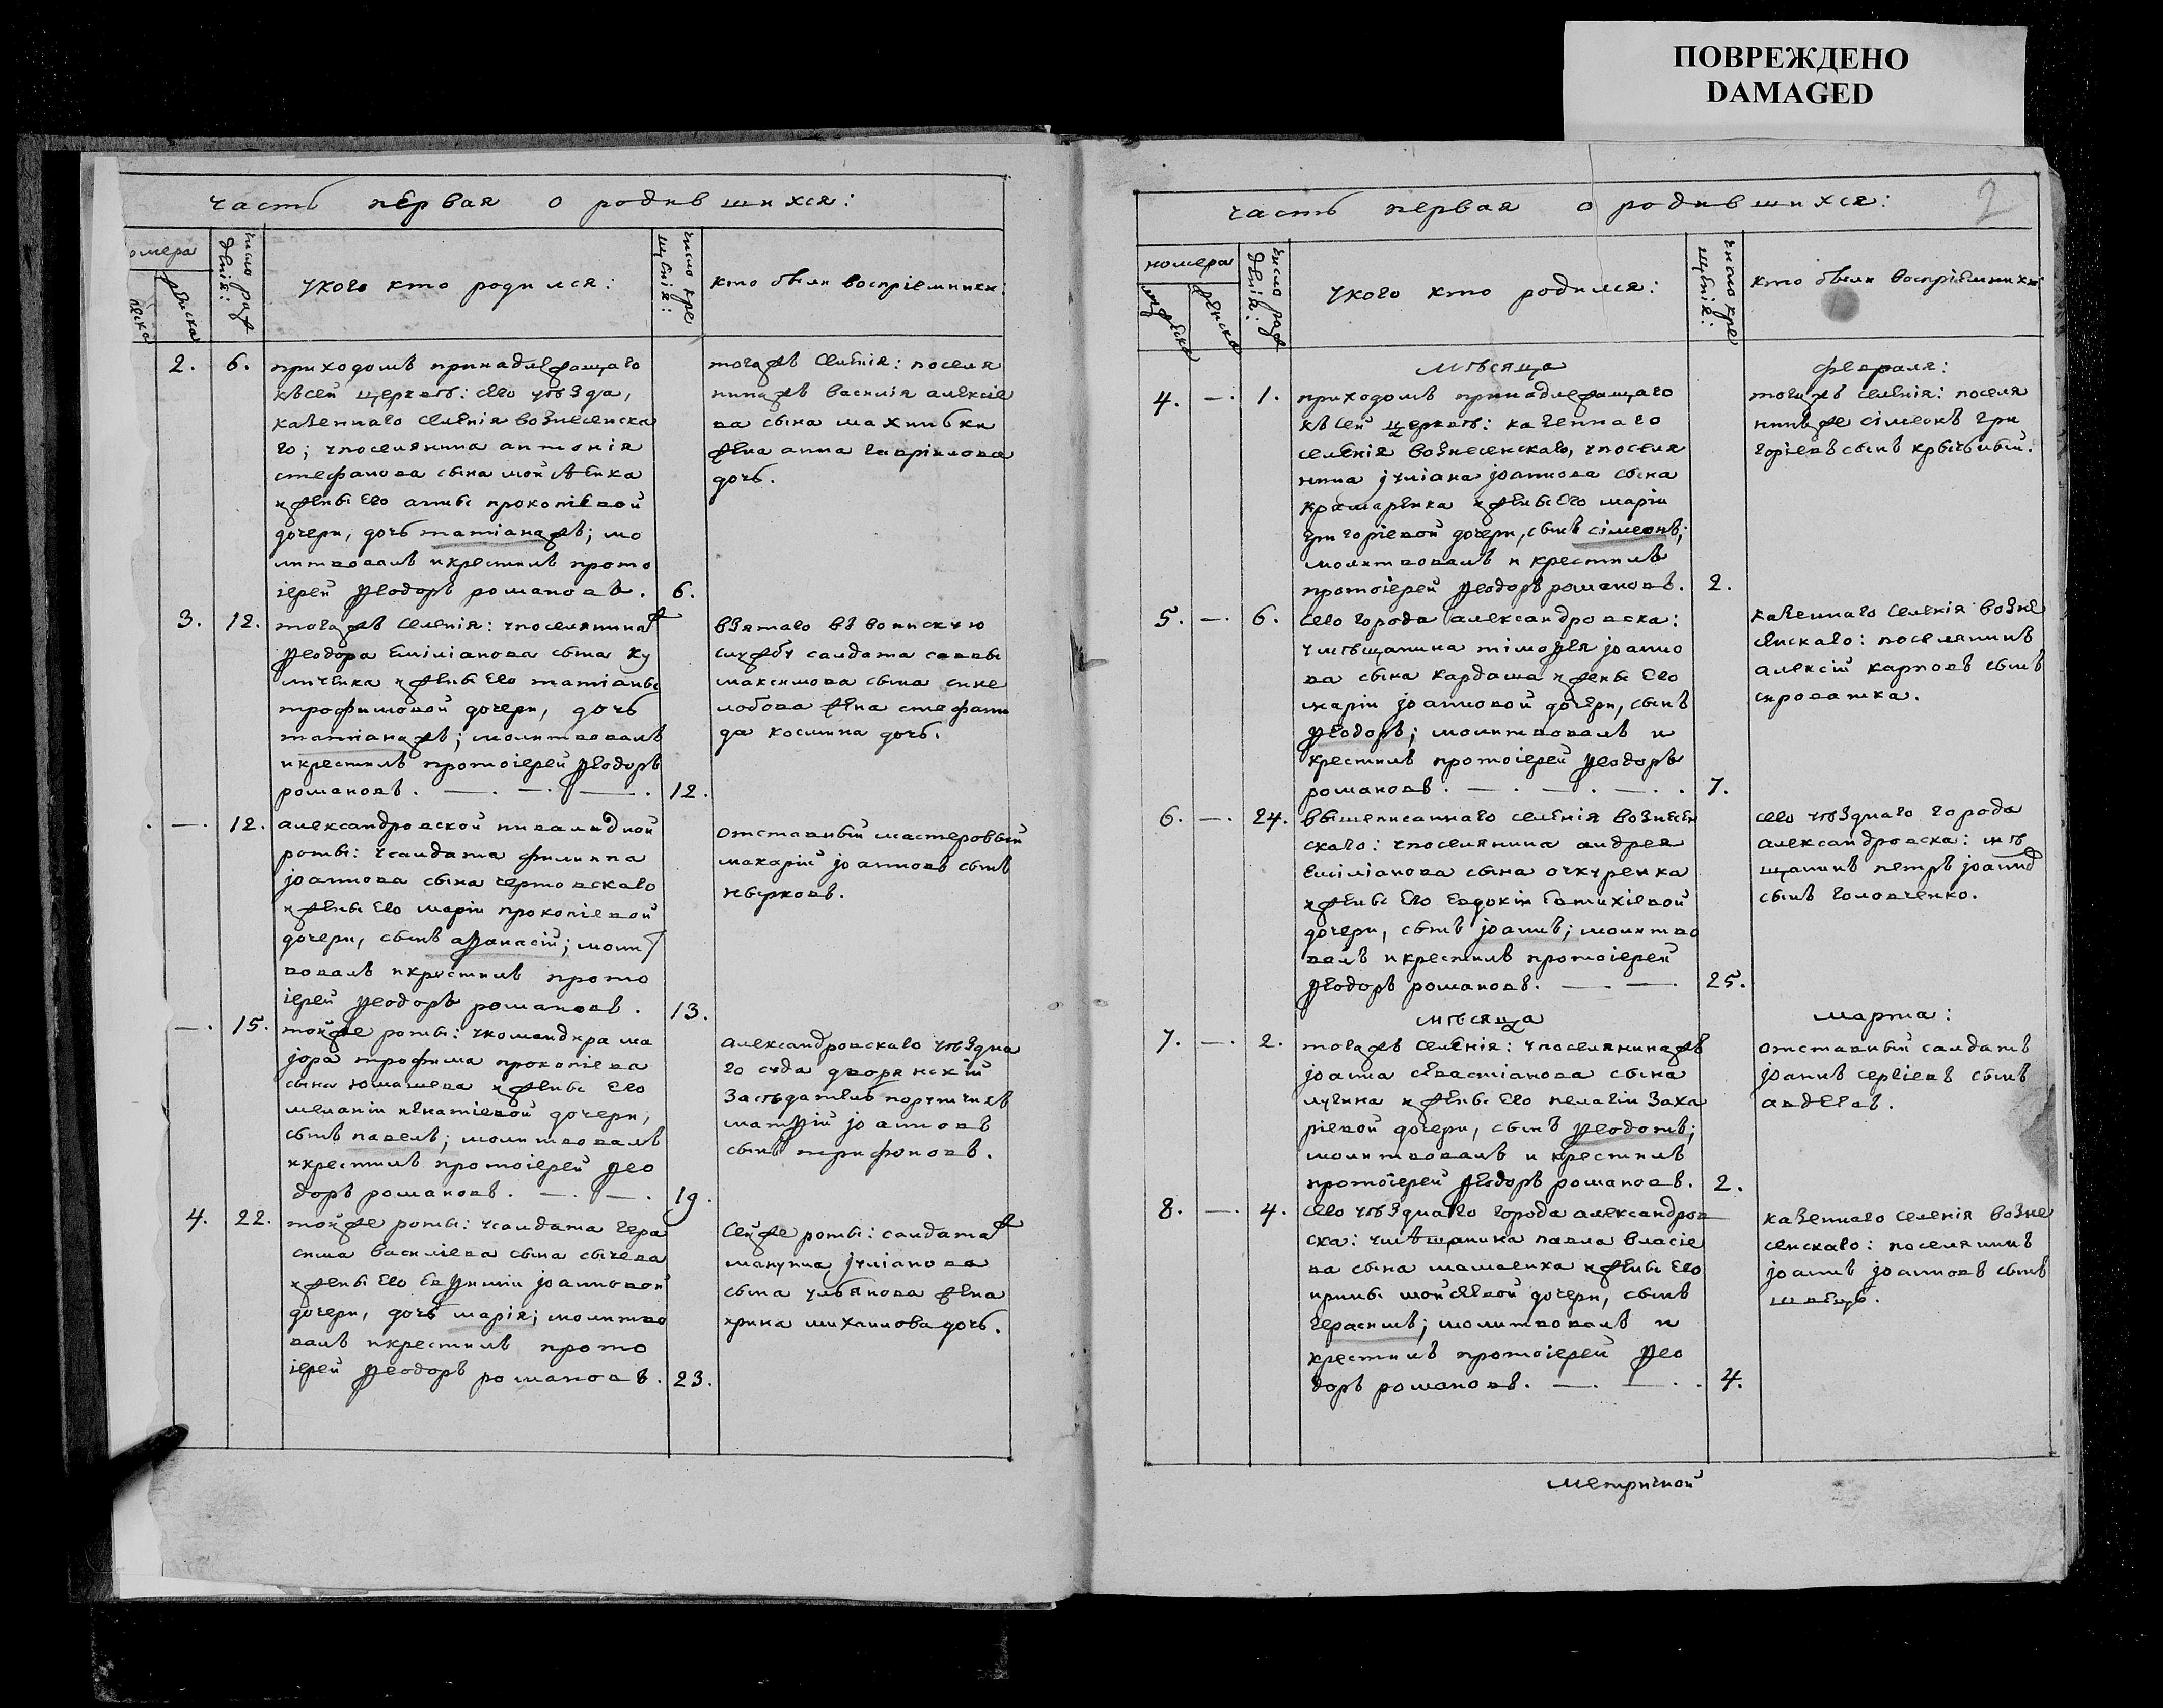 ПОВРЕЖДЕНО
DAMAGED
часть первая о родившихся:
омера
женска
число рож
денія:
укого кто родился:
число кре
щенія:
кто были воспріемники:
2. 6.
приходомъ принадлежащаго
ксей церкве: сего уезда,
казеннаго селенія вознесенска
го; упоселянина антонія
стефанова сына мойсеенка
ижены его анны прокопіевой
дочери, дочь татіанажъ; мо
литвовалъ икрестилъ прото
іерей Ѳеодоръ романовъ. 6.
тогажъ селенія: поселя
нинажъ василія алексіе
ва сына махнибки
жена анна гавріилова
дочь.
3. 12.
тогажъ селенія: упоселянинаж
Ѳеодора Емиліанова сына ку
личенка ижены его татіаны
трофимовой дочери, дочь
татіанажъ; молитвовалъ
икрестилъ протоіерей Ѳеодоръ
романовъ. —. —. —. 12.
взятаго въ воинскую
службу салдата саввы
максимова сына сине
лобова жена стефани
да космина дочь.
. —. 12.
александровской инвалидной
роты: усалдата филиппа
іоаннова сына чертовскаго
ижены его маріи прокопіевой
дочери, сынъ аѲанасій; молит
вовалъ икрестилъ прото
іерей Ѳеодоръ романовъ. 13.
отставный мастеровый
макарій іоанновъ сынъ
нырковъ.
—. 15.
тойже роты: укомандира ма
іора трофима прокопіева
сына юмашева ижены его
меланіи игнатіевой дочери,
сынъ павелъ; молитвовалъ
икрестилъ протоіерей Ѳео
доръ романовъ. —. —. 19.
александровскаго уѣздна
го суда дворянскій
засѣдатель поручикъ
матѲій іоанновъ
сынъ трифоновъ.
4. 22.
тойже роты: усалдата гера
сима василіева сына сычева
ижены его евѲиміи іоанновой
дочери, дочь марія; молитво
валъ икрестилъ прото
іерей Ѳеодоръ романовъ. 23.
сейже роты: салдатаж
мануила іуліанова
сына ульянова жена
ирина михаилова дочь.
часть первая о родившихся: 2
номера
мужеска
женска
число рож
денія:
укого кто родился:
число кре
щенія:
кто были воспріемники:
мѣсяца февраля:
4. —. 1.
приходомъ принадлежащаго
ксей церкве: казеннаго
селенія вознесенскаго, упоселя
нина іуліана іоаннова сына
крамаренка ижены его маріи
григоріевой дочери, сынъ сімеонъ;
молитвовалъ и крестилъ
протоіерей Ѳеодоръ романовъ. 2.
тогажъ селенія: поселя
нинъже сімеонъ гри
горіевъ сынъ
5. —. 6.
сего города александровска:
умѣщанина тимоѲея іоанно
ва сына кардаша ижены его
маріи іоанновой дочери, сынъ
Ѳеодоръ; молитвовалъ и
крестилъ протоіерей Ѳеодоръ
романовъ. —. —. —. 7.
казеннаго селенія возне
сенскаго: поселянинъ
алексій карповъ сынъ
сироватка.
6. —. 24.
вышеписаннаго селенія вознесен
скаго: упоселянина андрея
Емиліанова сына очкуренка
ижены его Евдокіи Евтихіевой
дочери, сынъ іоаннъ; молитво
валъ икрестилъ протоіерей
Ѳеодоръ романовъ. —. —. 25.
сего уѣзднаго города
александровска: мѣ
щанинъ петръ іоанно
сынъ головченко.
мѣсяца марта:
7. —. 2.
тогажъ селенія: упоселянинажъ
іоанна севастіанова сына
лугина ижены его пелагіи заха
ріевой дочери, сынъ Ѳеодотъ;
молитвовалъ и крестилъ
протоіерей Ѳеодоръ романовъ. 2.
отставный салдатъ
іоаннъ сергіевъ сынъ
авдеевъ.
8. —. 4.
сего уѣзднаго города александров
ска: умѣщанина павла власіе
ва сына мамаенка ижены его
ирины мойсеевой дочери, сынъ
герасимъ; молитвовалъ и
крестилъ протоіерей Ѳео
доръ романовъ. —. —. . 4.
казеннаго селенія возне
сенскаго: поселянинъ
іоаннъ іоанновъ сынъ
швець.
метричной